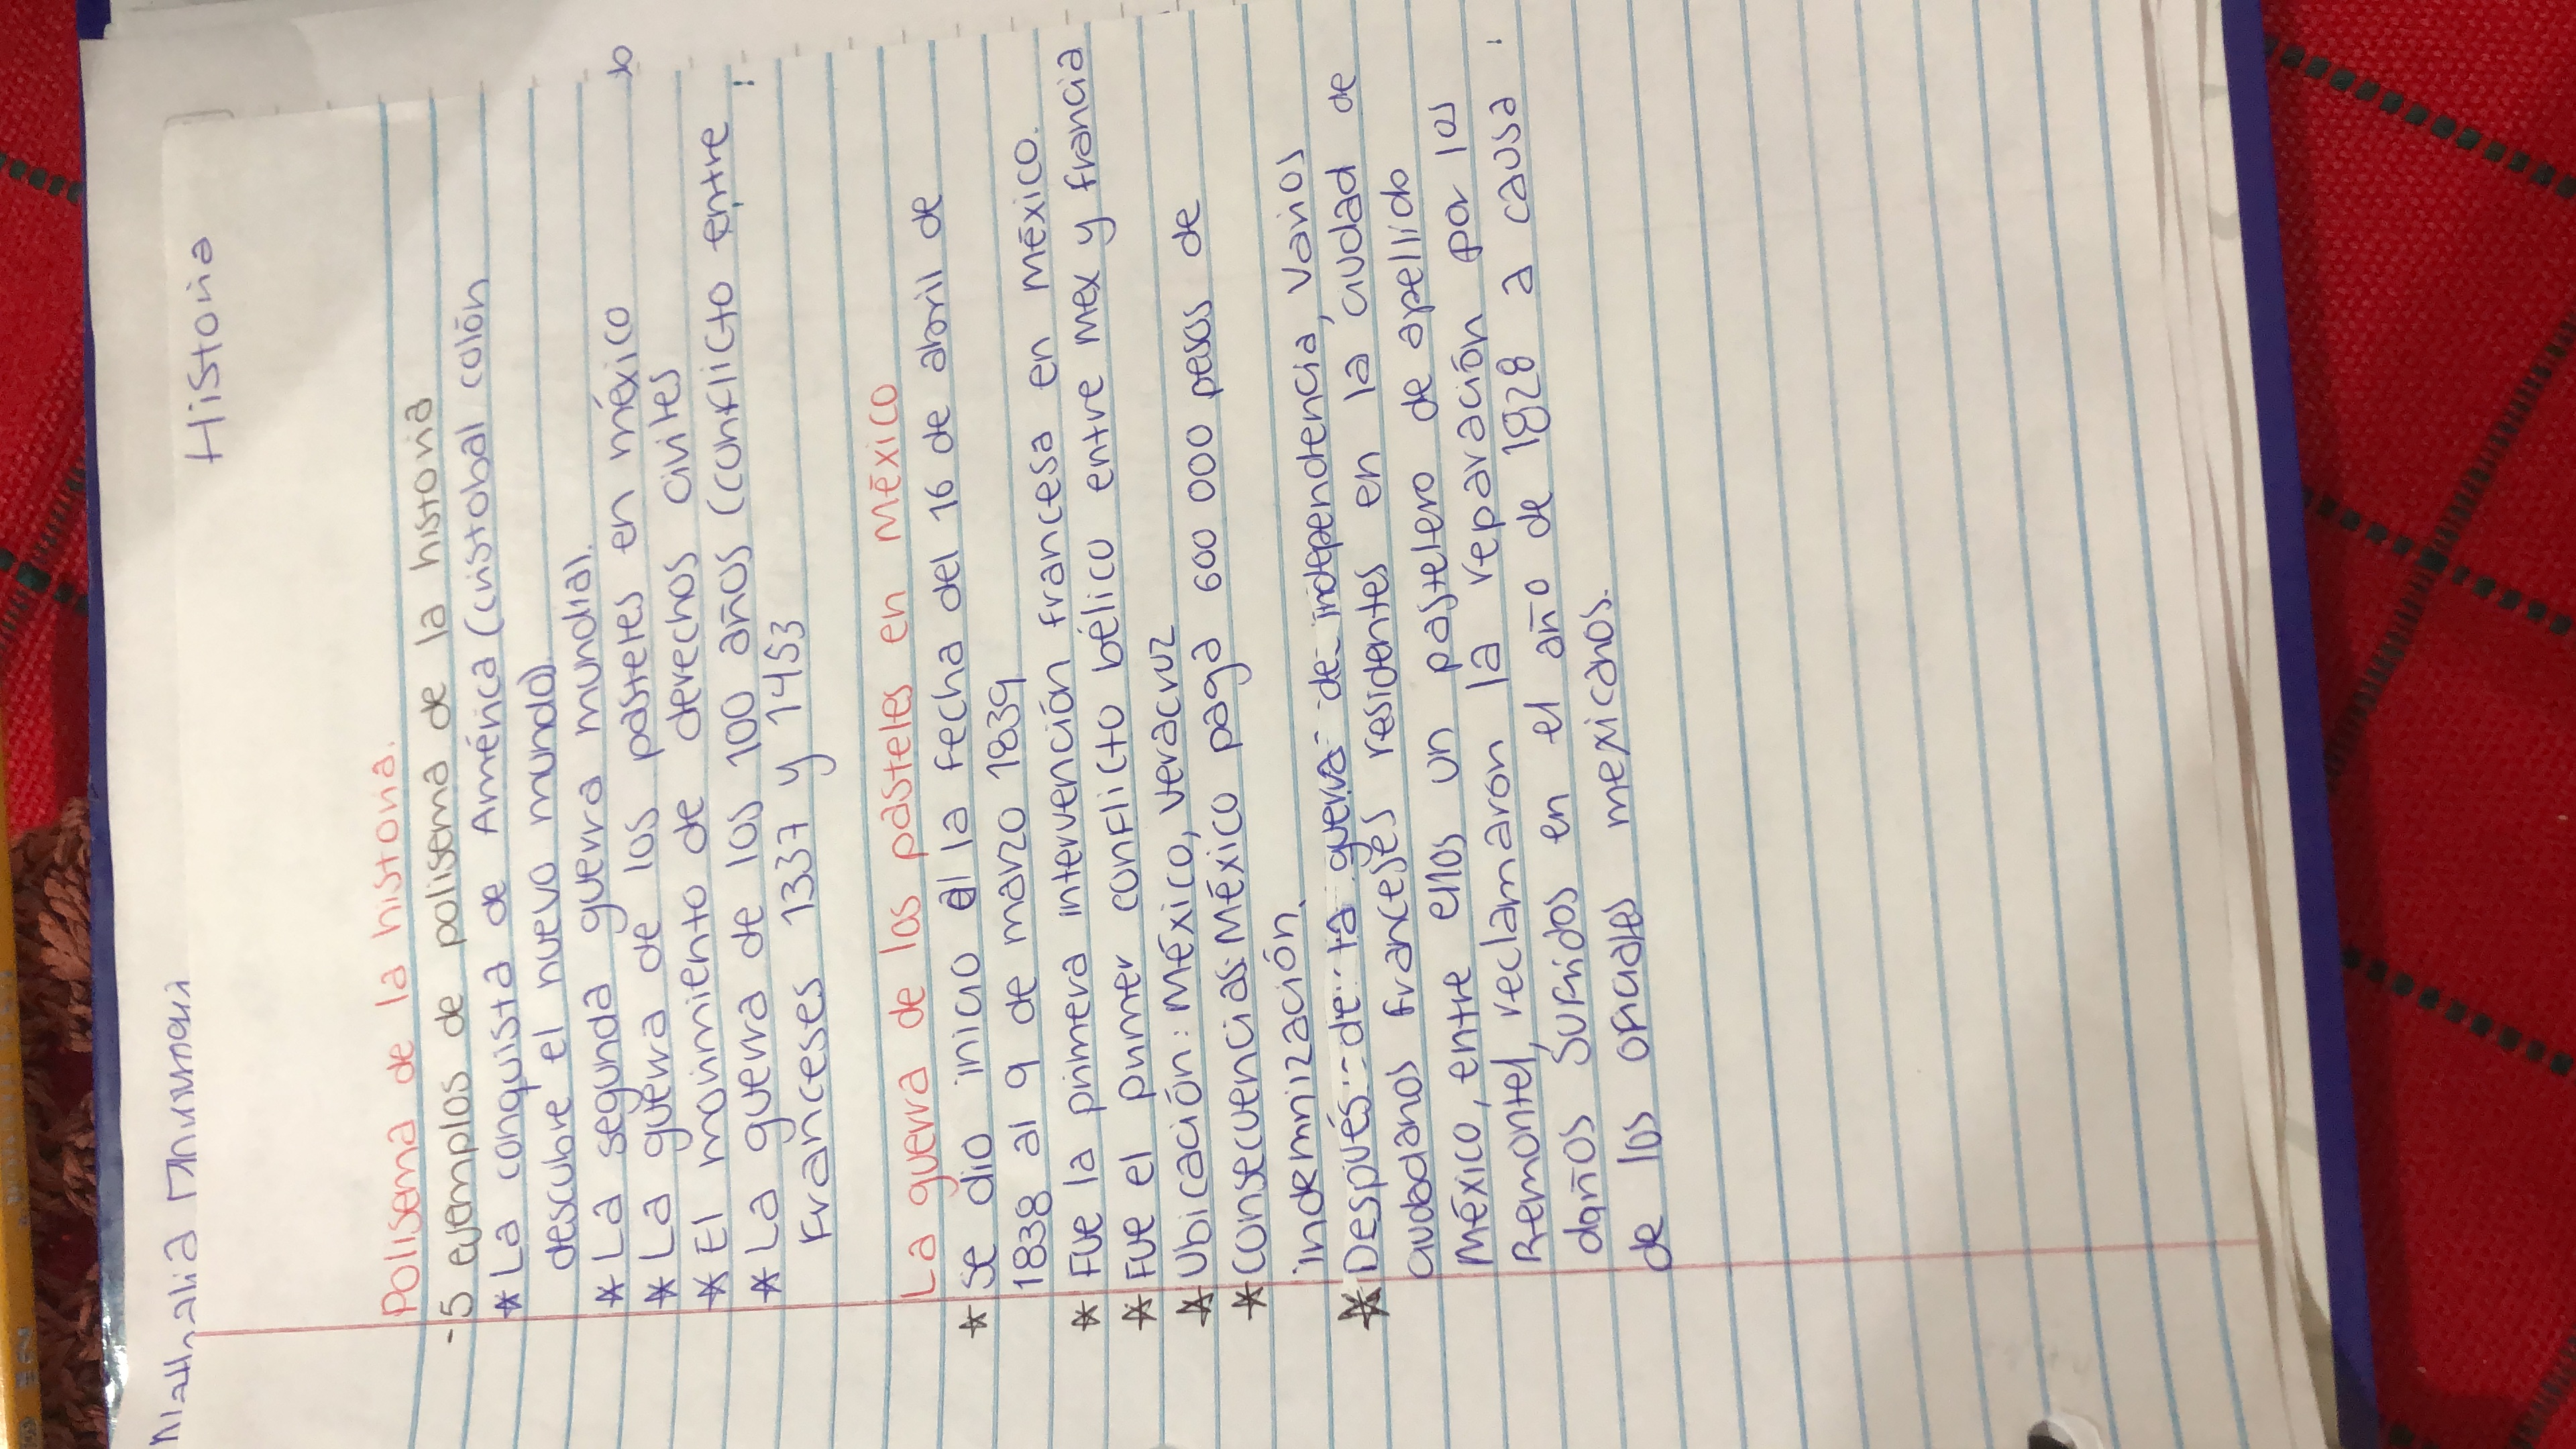 Historia
Polisemia de la historia.
-5 ejemplos de polisemia de la historia
* La conquista de América (cristobal colón
descubre el nuevo mundo).
* La segunda guerra mundial.
* La guerra de los pasteles en méxico
* El movimiento de derechos civiles
* La guerra de los 100 años (conflicto entre
Franceses 1337 y 1453
La guerra de los pasteles en México
* Se dio inicio el la fecha del 16 de abril de
1838 al 9 de marzo 1839
* Fue la primera intervención francesa en méxico.
* Fue el primer conflicto bélico entre mex y francia
* Ubicación: México, veracruz
* Consecuencias: México paga 600 000 pesos de
indemnización.
* Después de la guerra de independencia, varios
ciudadanos franceses residentes en la ciudad de
México, entre ellos un pastelero de apellido
Remontel, reclamaron la reparación por los
daños sufridos en el año de 1828 a causa
de los oficiales mexicanos.